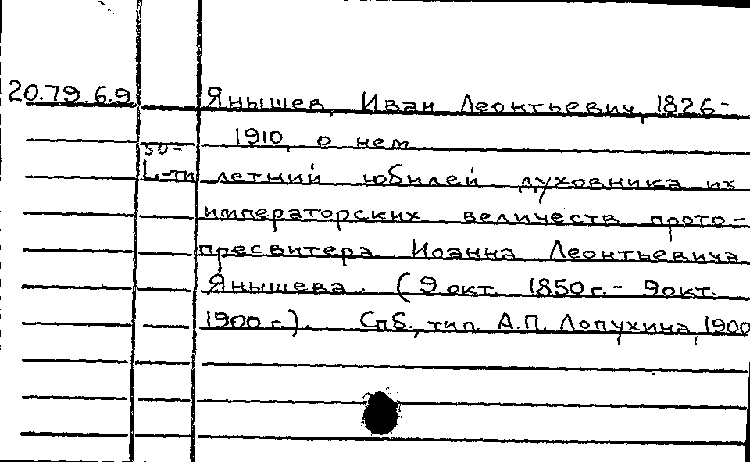 20.79.6.9 Янышев, Иван Леонтьевич, 1826-
1910, о нем
50-
L-ти летний юбилей духовника их
императорских величеств прото-
пресвитера Иоанна Леонтьевича
Янышева. (9 окт. 1850 г. - 9 окт.
1900 г.). Спб., тип. А.П. Лопухина, 1900